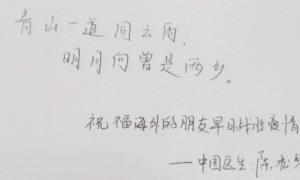 青山一道同云雨,
明月何曾是两乡。
祝福海外的朋友早日战胜疫情
——中国医生:陈